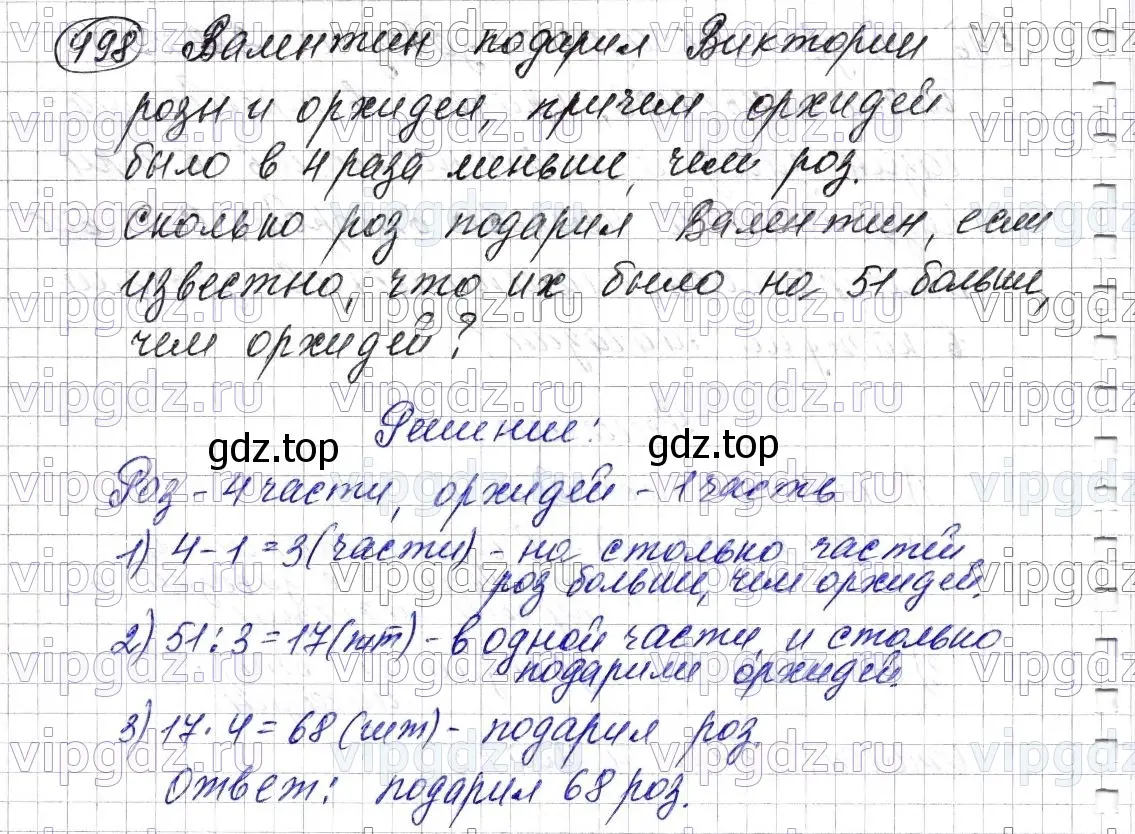 498 Валентин подарил Виктории
розы и орхидеи, причем орхидей
было в 4 раза меньше, чем роз.
Сколько роз подарил Валентин, если
известно, что их было на 51 больше,
чем орхидей?
Решение:
gdz.top
gdz.top
Роз - 4 части, орхидей - 1 часть
1) 4 - 1 = 3 (части) - на столько частей
роз больше, чем орхидей.
2) 51 : 3 = 17 (шт) - в одной части, и столько
подарили орхидей.
3) 17 · 4 = 68 (шт) - подарил роз.
Ответ: подарил 68 роз.
vipgdz.ru